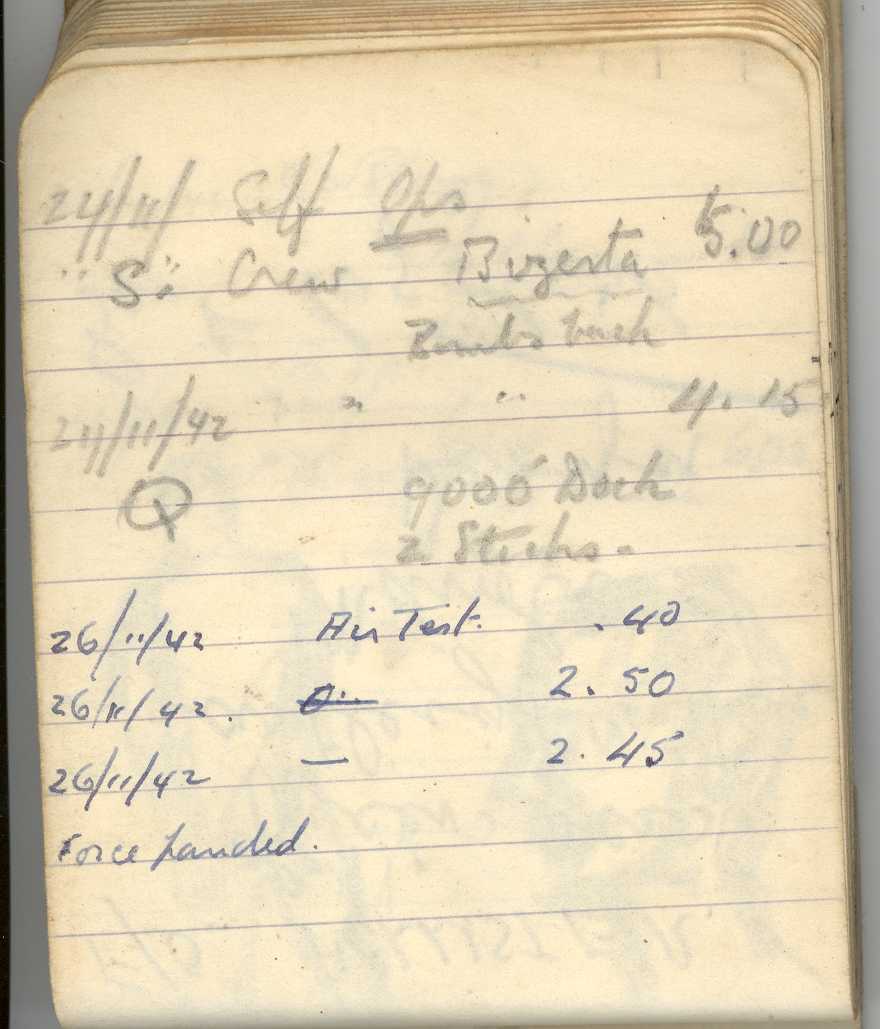 24/11/ Self Ops 5.00
"S" Crew Bizerta
Bombs back
24/11/42 " " 4.15
Q 9000' Dock
2 Sticks.
26/11/42 Air Test. .40
26/11/42. 2.50
26/11/42 — 2.45
Force Landed.